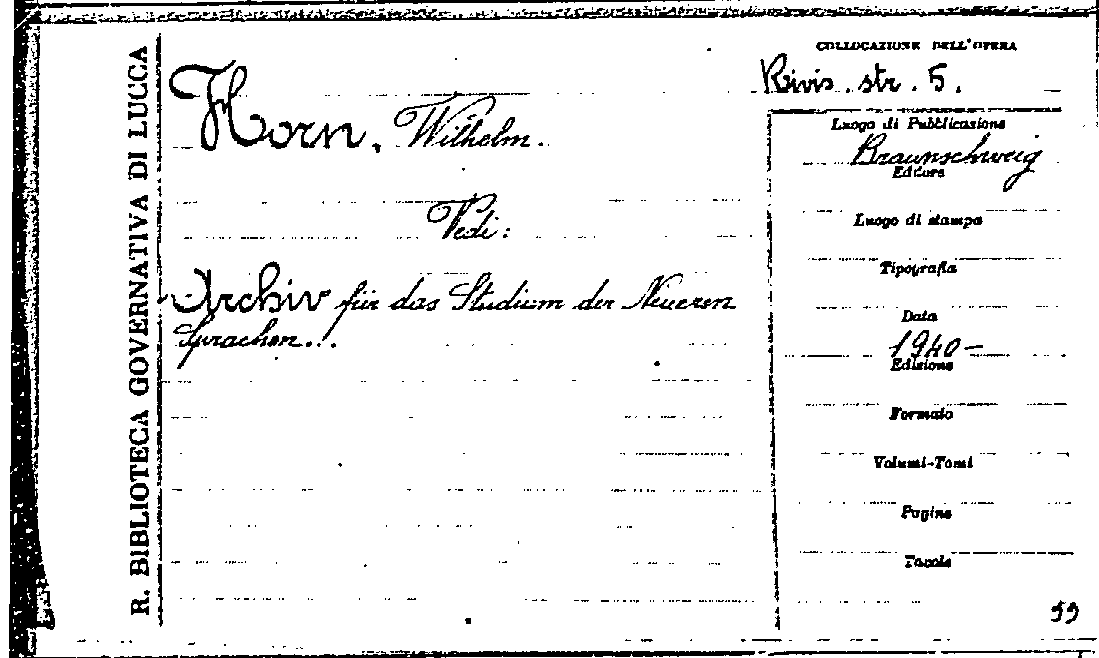 R. BIBLIOTECA GOVERNATIVA DI LUCCA
Horn, Wilhelm.
Vedi:
Archiv für das Studium der Neueren
Sprachen...
COLLOCAZIONE DELL'OPERA
Rivis. str. 5.
Luogo di Pubblicazione
Braunschweig
Editore
Luogo di stampa
Tipografia
Data
1940-
Edizione
Formato
Volumi-Tomi
Pagine
Tavole